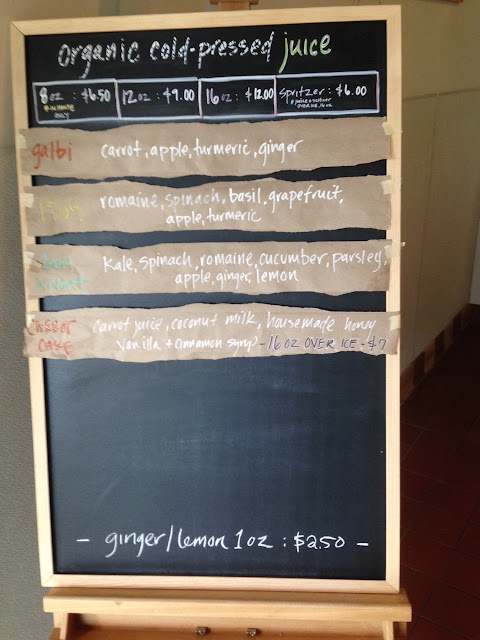 organic cold-pressed juice
8oz : $6.50 12oz : $9.00 16oz : $12.00 Spritzer : $6.00
ONLY
galbi carrot, apple, turmeric, ginger
romaine, spinach, basil, grapefruit,
apple, turmeric
kale, spinach, romaine, cucumber, parsley,
apple, ginger, lemon
carrot juice, coconut milk, housemade honey
CAKE vanilla + cinnamon syrup - 16 OZ OVER ICE - $7
- ginger/lemon 1oz : $2.50 -